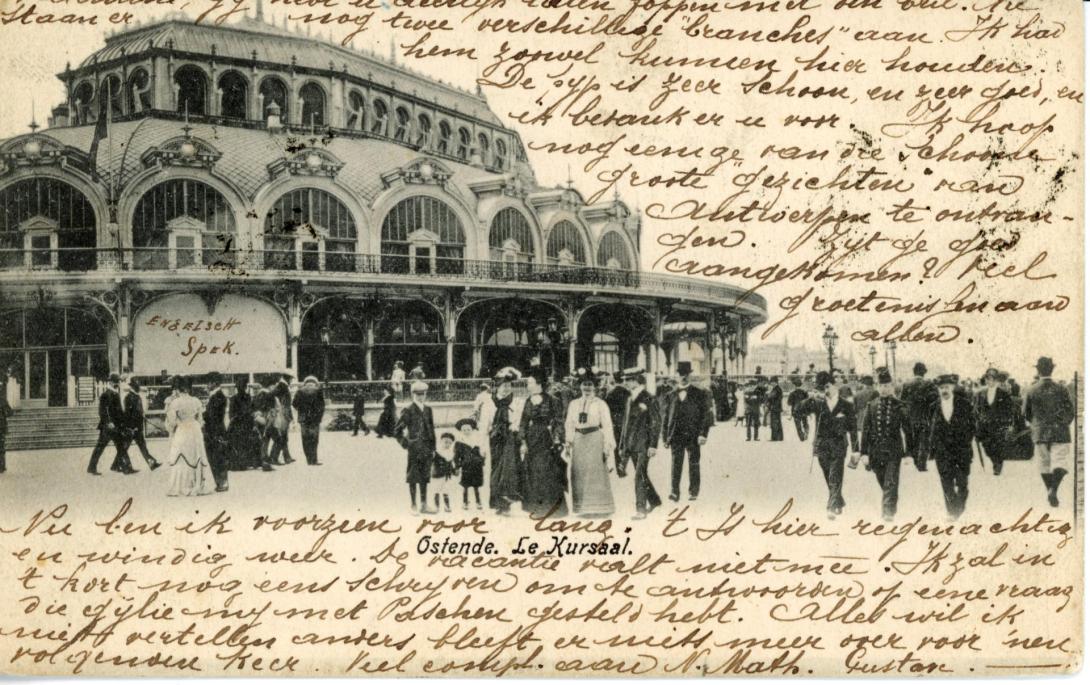 nog twee verschillige "branches" aan. Ik had
hem zoowel kunnen hier houden.
De pijp is zeer schoon, en zeer goed, en
ik bedank er u voor. Ik hoop
nog eenige van die schoone
groote gezichten van
Antwerpen te ontvan-
gen. Zijt ge goed
aangekomen? Veel
groetenissen aan
allen.
ENGELSCH
SPEK.
Nu ben ik voorzien voor lang. 't Is hier regenachtig
Ostende. Le Kursaal.
en windig weer. De vacantie valt niet mee. Ik zal in
't kort nog eens schryven om te antwoorden op eene vraag
die gylie my met Paschen gesteld hebt. Alles wil ik
niet vertellen anders bleeft er niets meer over voor 'nen
volgenden keer. Veel compl. aan N. Math. Gustav.